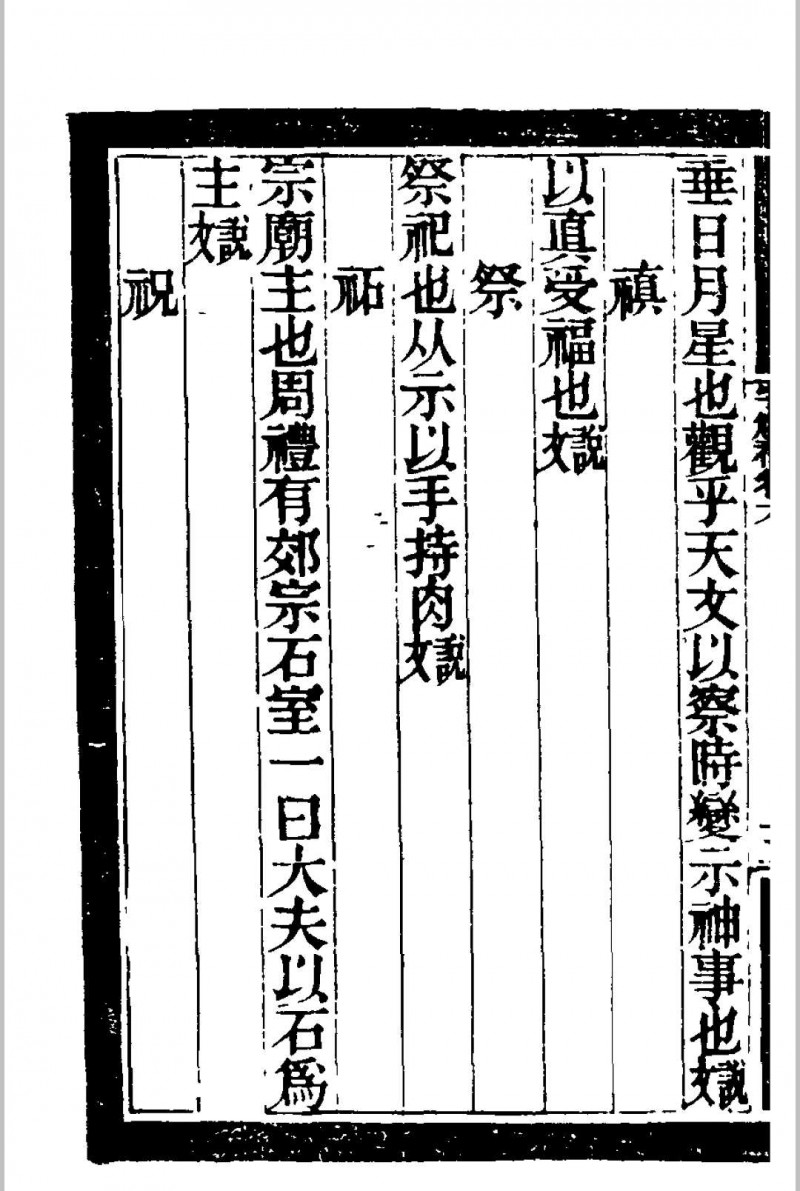 垂日月星也觀乎天文以察時變示神事也說文
禛
以真受福也說文
祭
祭祀也从示以手持肉說文
祏
宗廟主也周禮有郊宗石室一曰大夫以石爲
主說文
祝